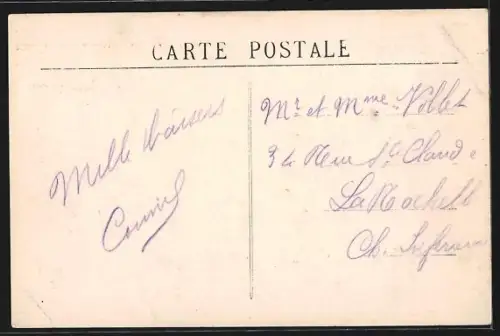 CARTE POSTALE
Mille baisers
Mr et Mme Vollet
Rue Ste Claude
La Rochelle
Ch. Infre